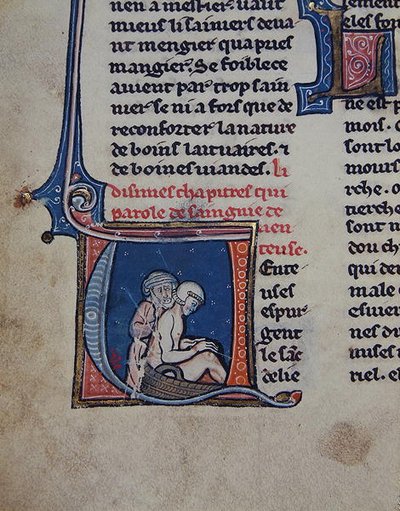 nen a mestier. uaut
mieus li sainiers deua
nt mengier qua pries
mangier. Se foiblece
auient par trop sain
nier se ni a fors que de
reconforter la nature
de boins laituaires. ⁊
de boines uiandes. li
disimes chapitres qui
parole de sainguie de
uen
teuse.
Uente
uses
espur
gent
le sãc
delie
eles fon
ne est p
mois. C
sont lo
mours
rche. o
tierche
sont n
dou ch
qui de
male e
nes du
riel. e